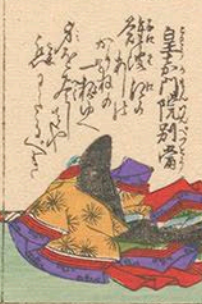 皇嘉門院別當
難波江の
あしの
かりねの
一夜ゆへ
身をつくしてや
戀わたるへき